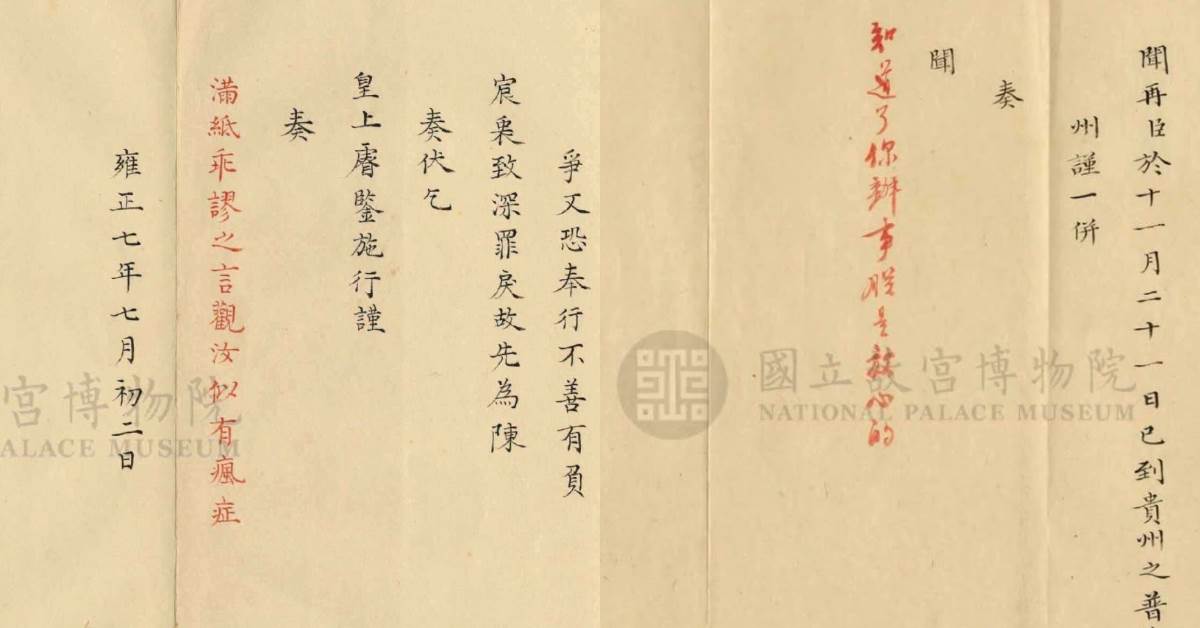 聞再臣於十一月二十一日已到貴州之普
州謹一併
奏
聞
知道了你辦事朕是放心的
國立故宮博物院
NATIONAL PALACE MUSEUM
爭又恐奉行不善有負
宸衷致深罪戾故先為陳
奏伏乞
皇上睿鑒施行謹
奏
滿紙乖謬之言觀汝似有瘋症
雍正七年七月初二日
宮博物院
ALACE MUSEUM